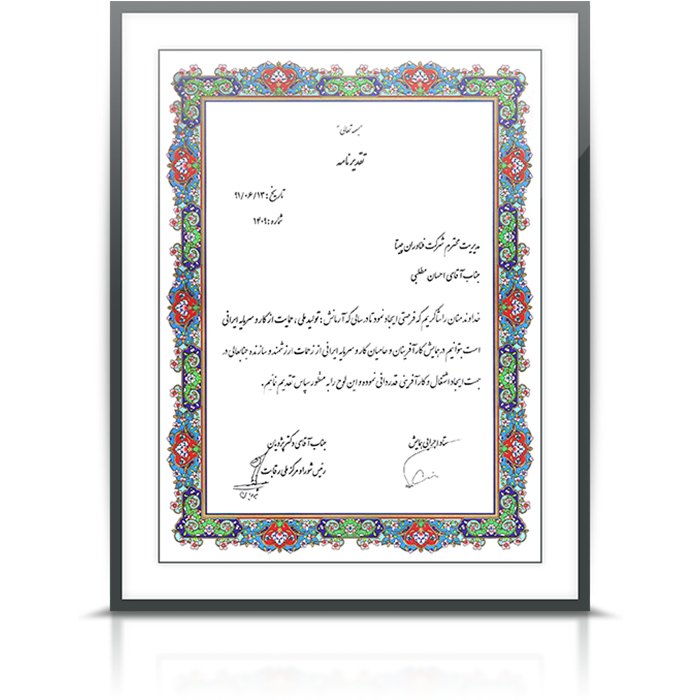 "بسمه تعالی"
تقدیر نامه
تاریخ : ۹۱/۰۶/۱۳
شماره : ۱۴۰۹
مدیریت محترم شرکت فناوران چیتا
جناب آقای احسان مطلبی
خداوند منان را شاکریم که فرصتی ایجاد نمود تا در سالی که آرمانش : تولید ملی ، حمایت از کار و سرمایه ایرانی
است بتوانیم در همایش کارآفرینان و حامیان کار و سرمایه ایرانی از زحمات ارزشمند و سازنده جنابعالی در
جهت ایجاد اشتغال و کارآفرینی قدردانی نموده و این لوح را به منظور سپاس تقدیم نمائیم .
ستاد اجرایی همایش
جناب آقای دکتر پژویان
رئیس شورا و مرکز ملی رقابت